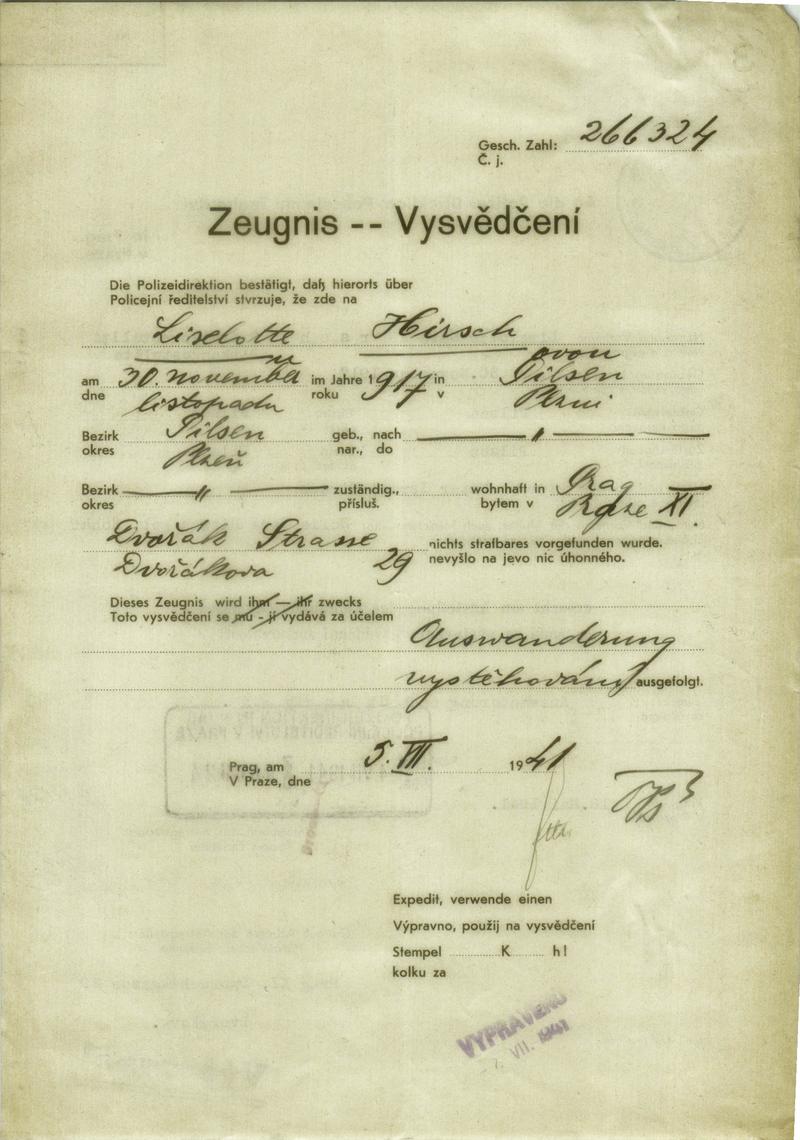 Gesch. Zahl: 266324
Č. j.
Zeugnis -- Vysvědčení
Die Polizeidirektion bestätigt, daß hierorts über
Policejní ředitelství stvrzuje, že zde na
Liselotte Hirsch
ovou
am 30. november im Jahre 1917 in Pilsen
dne listopadu roku v Plzni
Bezirk Pilsen geb., nach — " —
okres Plzeň nar., do
Bezirk — " — zuständig., wohnhaft in Prag
okres přísluš. bytem v Praze XI.
Dvořák Strasse nichts strafbares vorgefunden wurde.
Dvořákova 29 nevyšlo na jevo nic úhonného.
Dieses Zeugnis wird ihm — ihr zwecks
Toto vysvědčení se mu - jí vydává za účelem
Auswanderung
vystěhování ausgefolgt.
Prag, am 5. VII. 1941
V Praze, dne
Expedit, verwende einen
Výpravno, použij na vysvědčení
Stempel K h!
kolku za
VYPRAVENO
7. VII. 1941